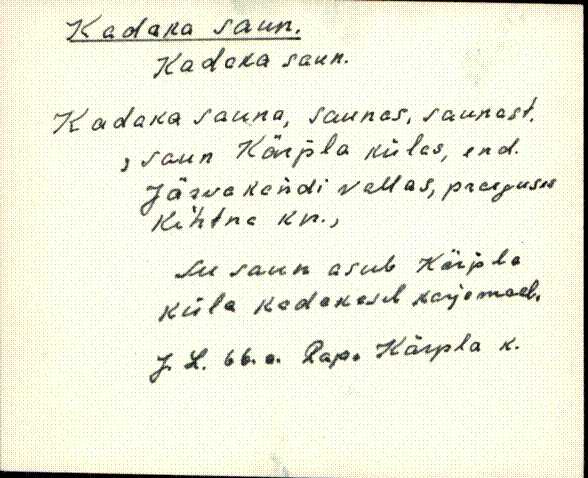 Kadaka saun.
Kadaka saun.
Kadaka sauna, saunas, saunast.
, saun Kärpla külas, end.
Järvakandi vallas, praeguses
Kihtna kn.,
See saun asub Kärpla
küla kadakasel karjamaal.
J. L. 66.a. Rap. Kärpla k.